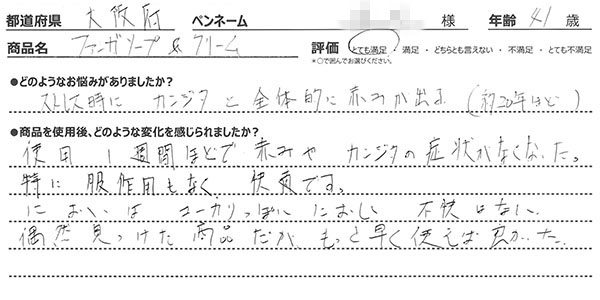 都道府県 大阪府 ペンネーム 様 年齢 41 歳
商品名 ファンガソープ & クリーム 評価 とても満足・満足・どちらとも言えない・不満足・とても不満足
※○で囲んでお選びください。
●どのようなお悩みがありましたか?
ストレス時に カンジタ と 全体的に 赤みが出る (約20年ほど)
●商品を使用後、どのような変化を感じられましたか?
使用 1週間ほどで 赤みや カンジタの症状がなくなった。
特に 服作用もなく 快適です。
においは ユーカリっぽい におい 不快はない。
偶然見つけた商品だが、もっと早く使えば良かった。